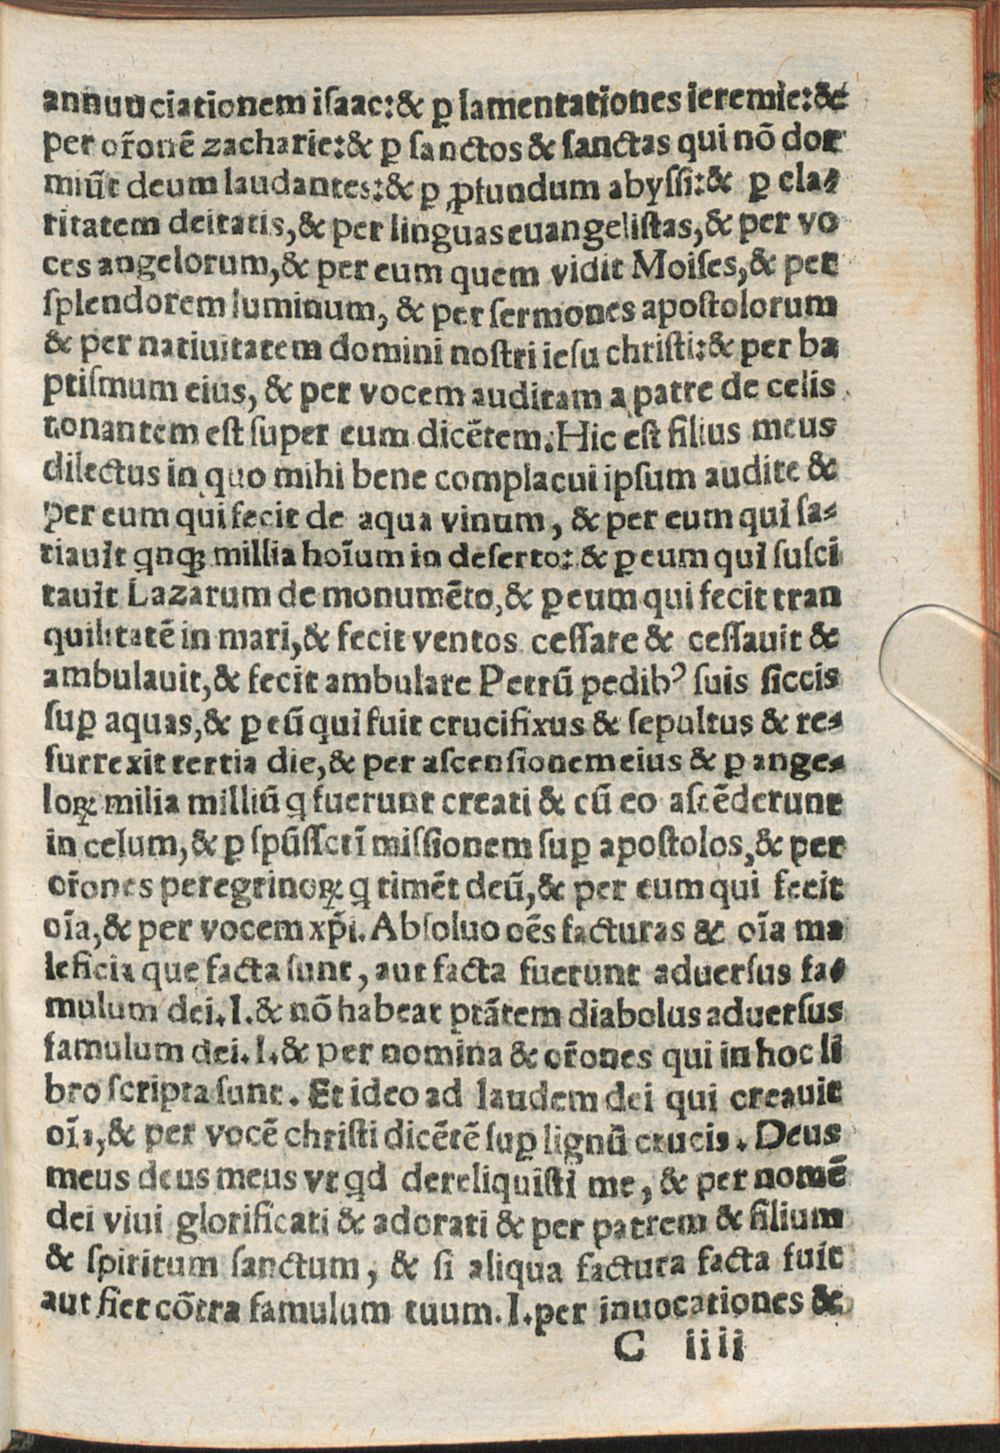 annunciationem iſaac:& ꝑ lamentationes ieremie:&
per or̃onē zacharie:& ꝑ ſanctos & ſanctas qui nō dor
miūt deum laudantes:& ꝑ ꝓfundum abyſſi:& ꝑ cla⸗
ritatem deitatis,& per linguas euangeliſtas,& per vo
ces angelorum,& per eum quem vidit Moiſes,& per
ſplendorem luminum, & per ſermones apoſtolorum
& per natiuitatem domini noſtri ieſu chriſti:& per ba
ptiſmum eius, & per vocem auditam a patre de celis
tonantem eſt ſuper eum dicētem.Hic eſt filius meus
dilectus in quo mihi bene complacui ipſum audite &
per eum qui fecit de aqua vinum, & per eum qui ſa⸗
tiauit qnqꝫ millia hoīum in deſerto: & ꝑ eum qui ſuſci
tauit Lazarum de monumēto,& ꝑ eum qui fecit tran
quilitatē in mari,& fecit ventos ceſſare & ceſſauit &
ambulauit,& fecit ambulare Petrū pedibꝰ ſuis ſiccis
ſuꝑ aquas,& ꝑ eū qui fuit crucifixus & ſepultus & re⸗
ſurrexit tertia die,& per aſcenſionem eius & ꝑ ange⸗
loꝝ milia milliū q fuerunt creati & cū eo aſcēderunt
in celum,& ꝑ ſpūſſctī miſſionem ſuꝑ apoſtolos,& per
or̃ones peregrinoꝝ q timēt deū,& per eum qui fecit
oīa,& per vocem xp̄i.Abſoluo oēs facturas & oīa ma
leficia que facta ſunt, aut facta fuerunt aduerſus fa⸗
mulum dei.I.& nō habeat ptātem diabolus aduerſus
famulum dei.I.& per nomina & or̃ones qui in hoc li
bro ſcripta ſunt. Et ideo ad laudem dei qui creauit
oīa,& per vocē chriſti dicētē ſuꝑ lignū crucis. Deus
meus deus meus vt qd dereliquiſti me, & per nomē
dei viui glorificati & adorati & per patrem & filium
& ſpiritum ſanctum, & ſi aliqua factura facta fuit
aut fiet cōtra famulum tuum.I.per inuocationes &
C iiii